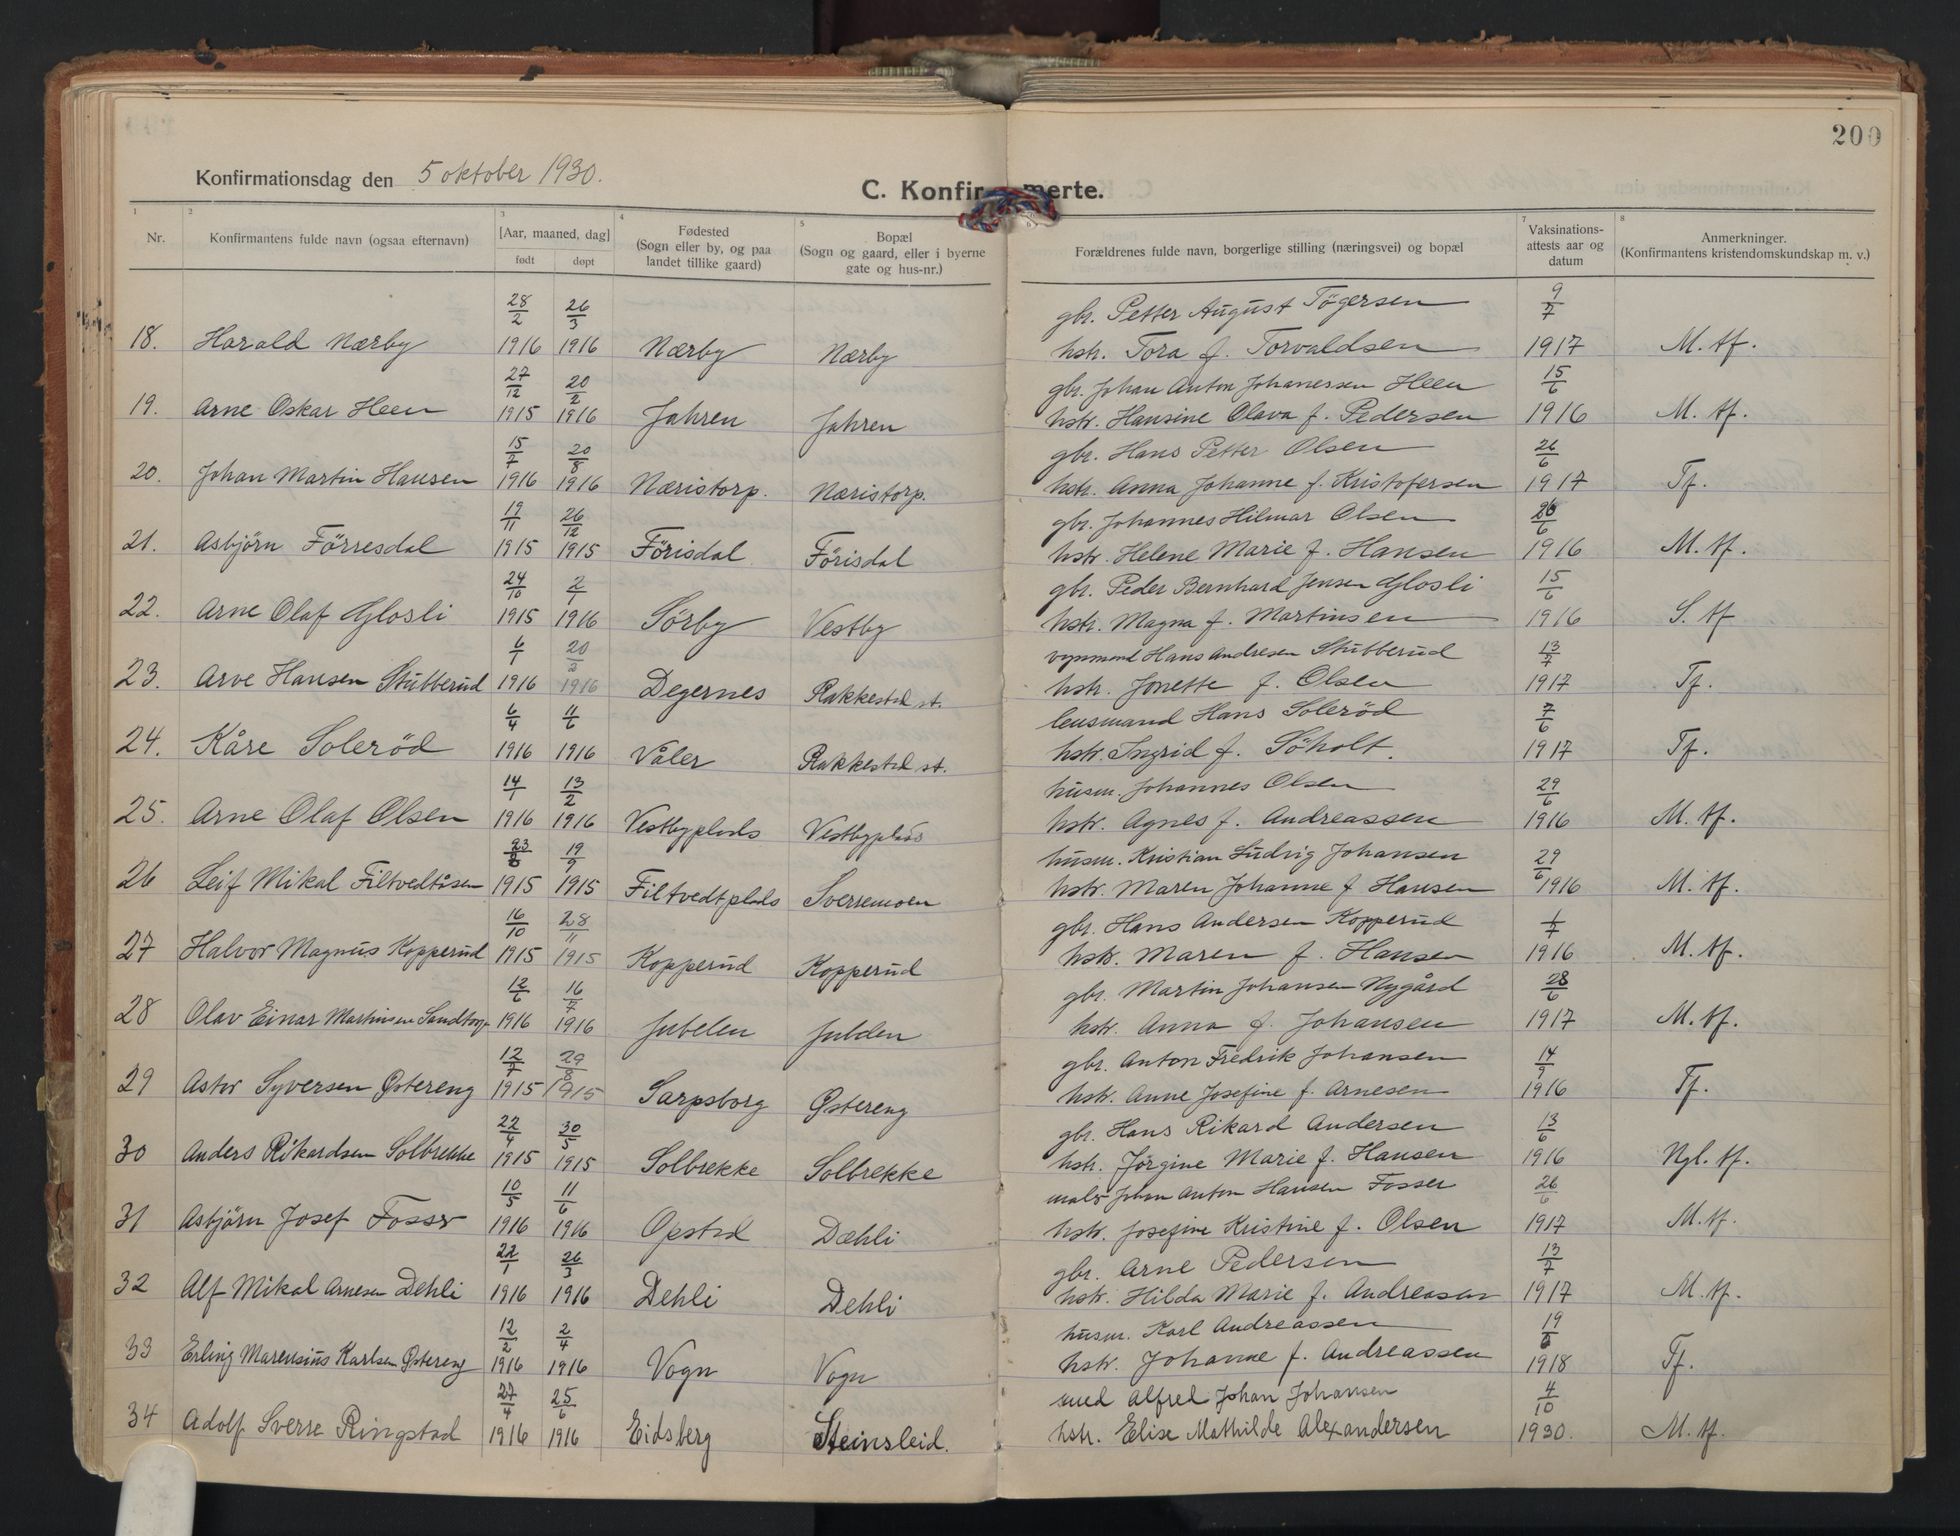 200
Konfirmationsdag den 5 oktober 1930.
C. Konfirmerte.
1 2 3 4 5 7 8
Nr. Konfirmantens fulde navn (ogsaa efternavn) [Aar, maaned, dag] født døpt Fødested (Sogn eller by, og paa landet tillike gaard) Bopæl (Sogn og gaard, eller i byerne gate og hus-nr.) Forældrenes fulde navn, borgerlige stilling (næringsvei) og bopæl Vaksinations-attests aar og datum Anmerkninger. (Konfirmantens kristendomskundskap m. v.)
28/2 26/3 gbr. Petter August Tögersen 9/7
18. Harald Nærby 1916 1916 Nærby Nærby hstr. Tora f. Torvaldsen 1917 M. tf.
27/12 20/2 gbr. Johan Anton Johanersen Heen 15/6
19. Arne Oskar Heen 1915 1916 Jahren Jahren hstr. Hansine Olava f. Pedersen 1916 M. tf.
15/7 20/8 gbr. Hans Petter Olsen 26/6
20. Johan Martin Hansen 1916 1916 Næristorp. Næristorp. hstr. Anna Johanne f. Kristofersen 1917 Tf.
19/11 26/12 gbr. Johannes Hilmar Olsen 26/6
21. Asbjörn Förresdal 1915 1915 Förisdal Förisdal hstr. Helene Marie f. Hansen 1916 M. tf.
24/10 2/1 gbr. Peder Bernhard Jensen Glosli 15/6
22. Arne Olaf Glosli 1915 1916 Sörby Vestby hstr. Magna f. Martinsen 1916 S. tf
6/1 20/2 Hans Andresen Stubberud 13/7
23. Arve Hansen Stubberud 1916 1916 Degernes Rakkestd st. hstr. Jonette f. Olsen 1917 Tf.
6/4 11/6 lensmand Hans Soleröd 7/6
24. Kåre Soleröd 1916 1916 Våler Rakkestd st. hstr. Ingrid f. Söholt. 1917 Tf.
14/1 13/2 husm. Johannes Olsen 29/6
25. Arne Olaf Olsen 1916 1916 Vestbyplads Vestbyplads hstr. Agnes f. Andreassen 1916 M. tf.
23/8 19/9 husm. Kristian Ludvig Johansen 29/6
26 Leif Mikal Filtvedtåsen 1915 1915 Filtvedtplads Sverremoen hstr. Maren Johanne f. Hansen 1916 M. tf.
16/10 28/11 gbr. Hans Andersen Kopperud 1/7
27 Halvor Magnus Kopperud 1915 1915 Kopperud Kopperud hstr. Maren f. Hansen 1916 M. tf.
12/6 16/7 gbr. Martin Johansen Nygård 28/6
28 Olav Einar Martinsen Sandtorp 1916 1916 Jubelen hstr. Anna f. Johansen 1917 M. tf.
12/7 29/8 gbr. Anton Fredrik Johansen 14/9
29 Astor Syversen Østereng 1915 1915 Sarpsborg Østereng hstr. Anne Josefine f. Arnesen 1916 Tf.
22/4 30/5 gbr. Hans Rikard Andersen 13/6
30 Anders Rikardsen Solbrekke 1915 1915 Solbrekke Solbrekke hstr. Jörgine Marie f. Hansen 1916 Ngl. tf.
10/5 11/6 maler Johan Anton Hansen Fosser 26/6
31 Asbjörn Josef Fosser 1916 1916 Opstd Dæhli hstr. Josefine Kristine f. Olsen 1917 M. tf.
22/1 26/3 gbr. Arne Pedersen 13/7
32 Alf Mikal Arnesen Dehli 1916 1916 Dehli Dehli hstr. Hilda Marie f. Andreasen 1917 M. tf.
12/2 2/4 husm. Karl Andreassen 19/6
33 Erling Marensius Karlsen Østereng 1916 1916 Vogn Vogn hstr. Johanne f. Andreassen 1918 Tf.
27/4 25/6 Alfred Johan Johansen 4/10
34 Adolf Sverre Ringstad 1916 1916 Eidsberg Steinsleid. hstr. Elise Mathilde Alexandersen 1930. M. tf.